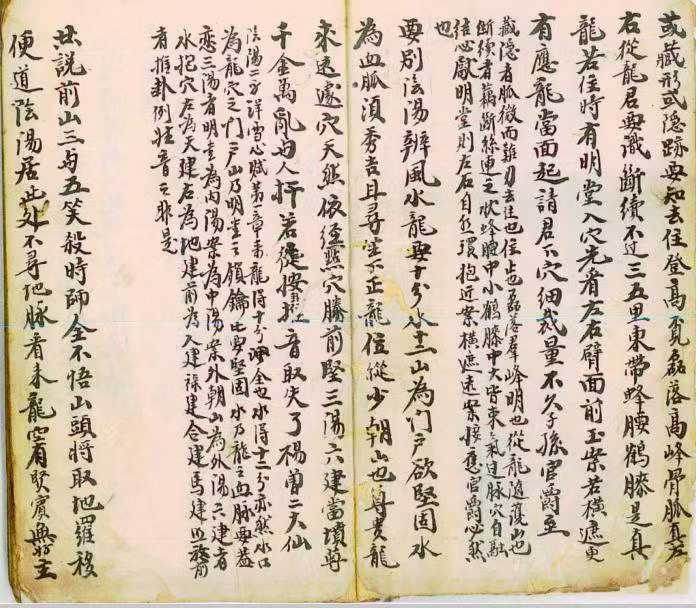 或藏形或隱跡要知去住登高覓磊落高峰骨脈真左
右從龍君要識斷續不过三五里東帶蜂腰鶴膝是真
龍若住時有明堂入穴先看左右臂面前玉案若橫遮更
有應龍當面起請君下穴細裁量不久子孫官爵至
藏隱者脈微而難
去住也住止也磊落羣峰明也從龍隨護山也
斷續者藕斷絲連之狀蜂腰中小鶴膝中大皆束氣过脉穴自融
結心獻明堂則左右自有環抱近案橫遮遠案接應官爵必然
也
要别陰陽辨風水龍要十分水十二山為門户欲堅固水
為血脈須秀吉且尋坐下正龍位從少朝山也尊貴龍
來远遠穴天然依經點穴勝前賢三陽六建當墳尊
千金萬亂与人扦若從撥
音取失了楊曾二大仙
陰陽二字詳雪心賦第一章來龍得十分
全也水得十二分亦然水口
為龍穴之門户山乃明堂之鎖鑰此要堅固水乃龍之血脉要益
恋三陽者明堂為内陽案為中陽案外朝山為外陽六建者
水抱穴左為天建右為地建前為人建禄建合建馬建
者推卦例
音之非是
此説前山三与五笑殺時師全不悟山頭將取地羅移
便道陰陽居此处不尋地脉看来龍
有賢賓無好主